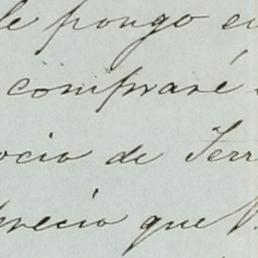 le pongo en
compraré
ocio de Terr
precio que V.